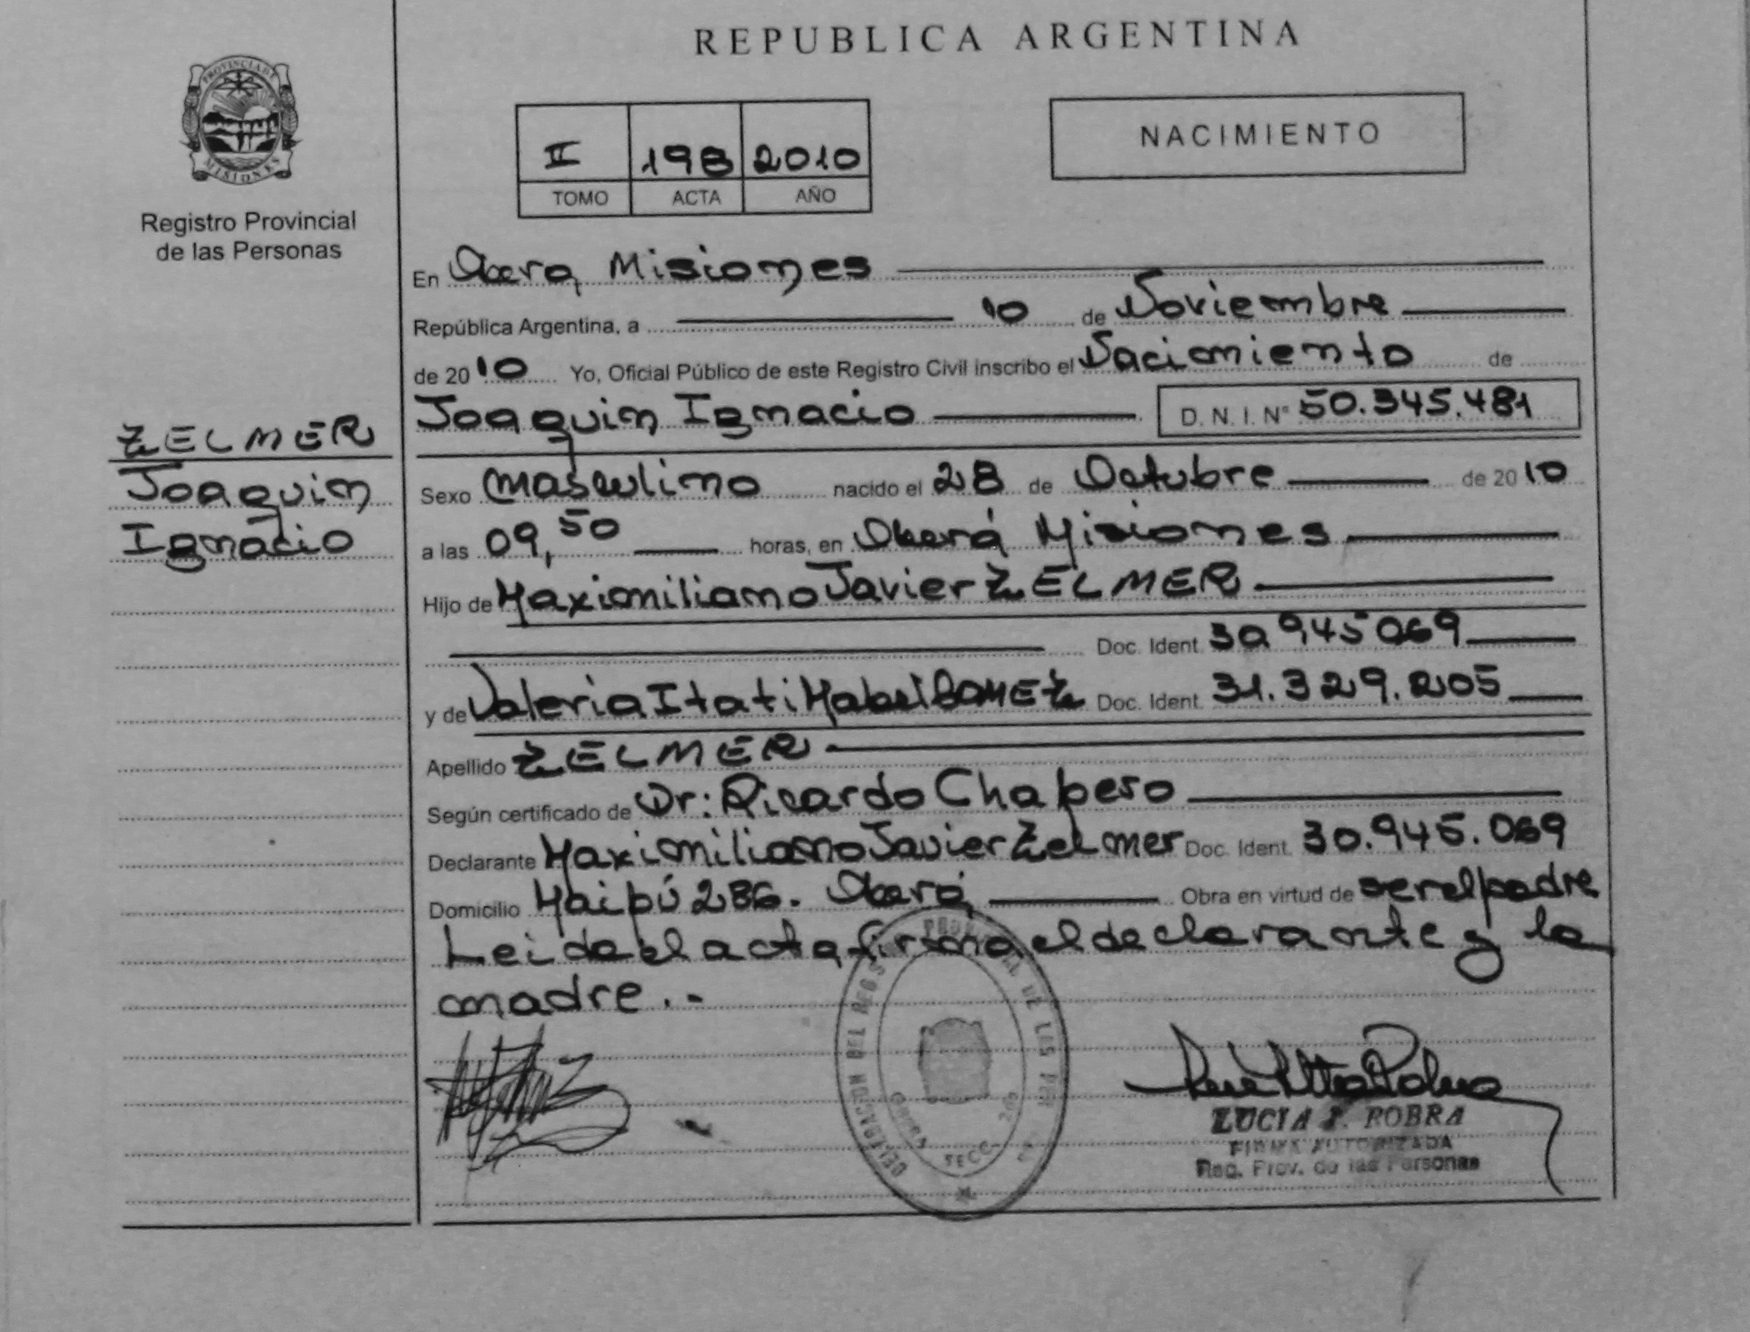 REPUBLICA ARGENTINA
PROVINCIA DE MISIONES
Registro Provincial
de las Personas
II 198 2010
TOMO ACTA AÑO
NACIMIENTO
En Obera, Misiones
República Argentina, a 10 de Noviembre
de 2010 Yo, Oficial Público de este Registro Civil inscribo el Nacimiento de
Joaquin Ignacio D. N. I. N° 50.345.481
ZELMER
Joaquin
Ignacio
Sexo Masculino nacido el 28 de Octubre de 2010
a las 09,50 horas, en Oberá Misiones
Hijo de Maximiliano Javier ZELMER
Doc. Ident. 30.945.069
y de Valeria Itati Mabel GOMEZ Doc. Ident. 31.329.205
Apellido ZELMER
Según certificado de Dr: Ricardo Chapero
Declarante Maximiliano Javier Zelmer Doc. Ident. 30.945.069
Domicilio Maipú 286. Oberá Obra en virtud de ser el padre
Leida el acta firma el declarante y la
madre.-
LUCIA ROBRA
FIRMA AUTORIZADA
Reg. Prov. de las Personas